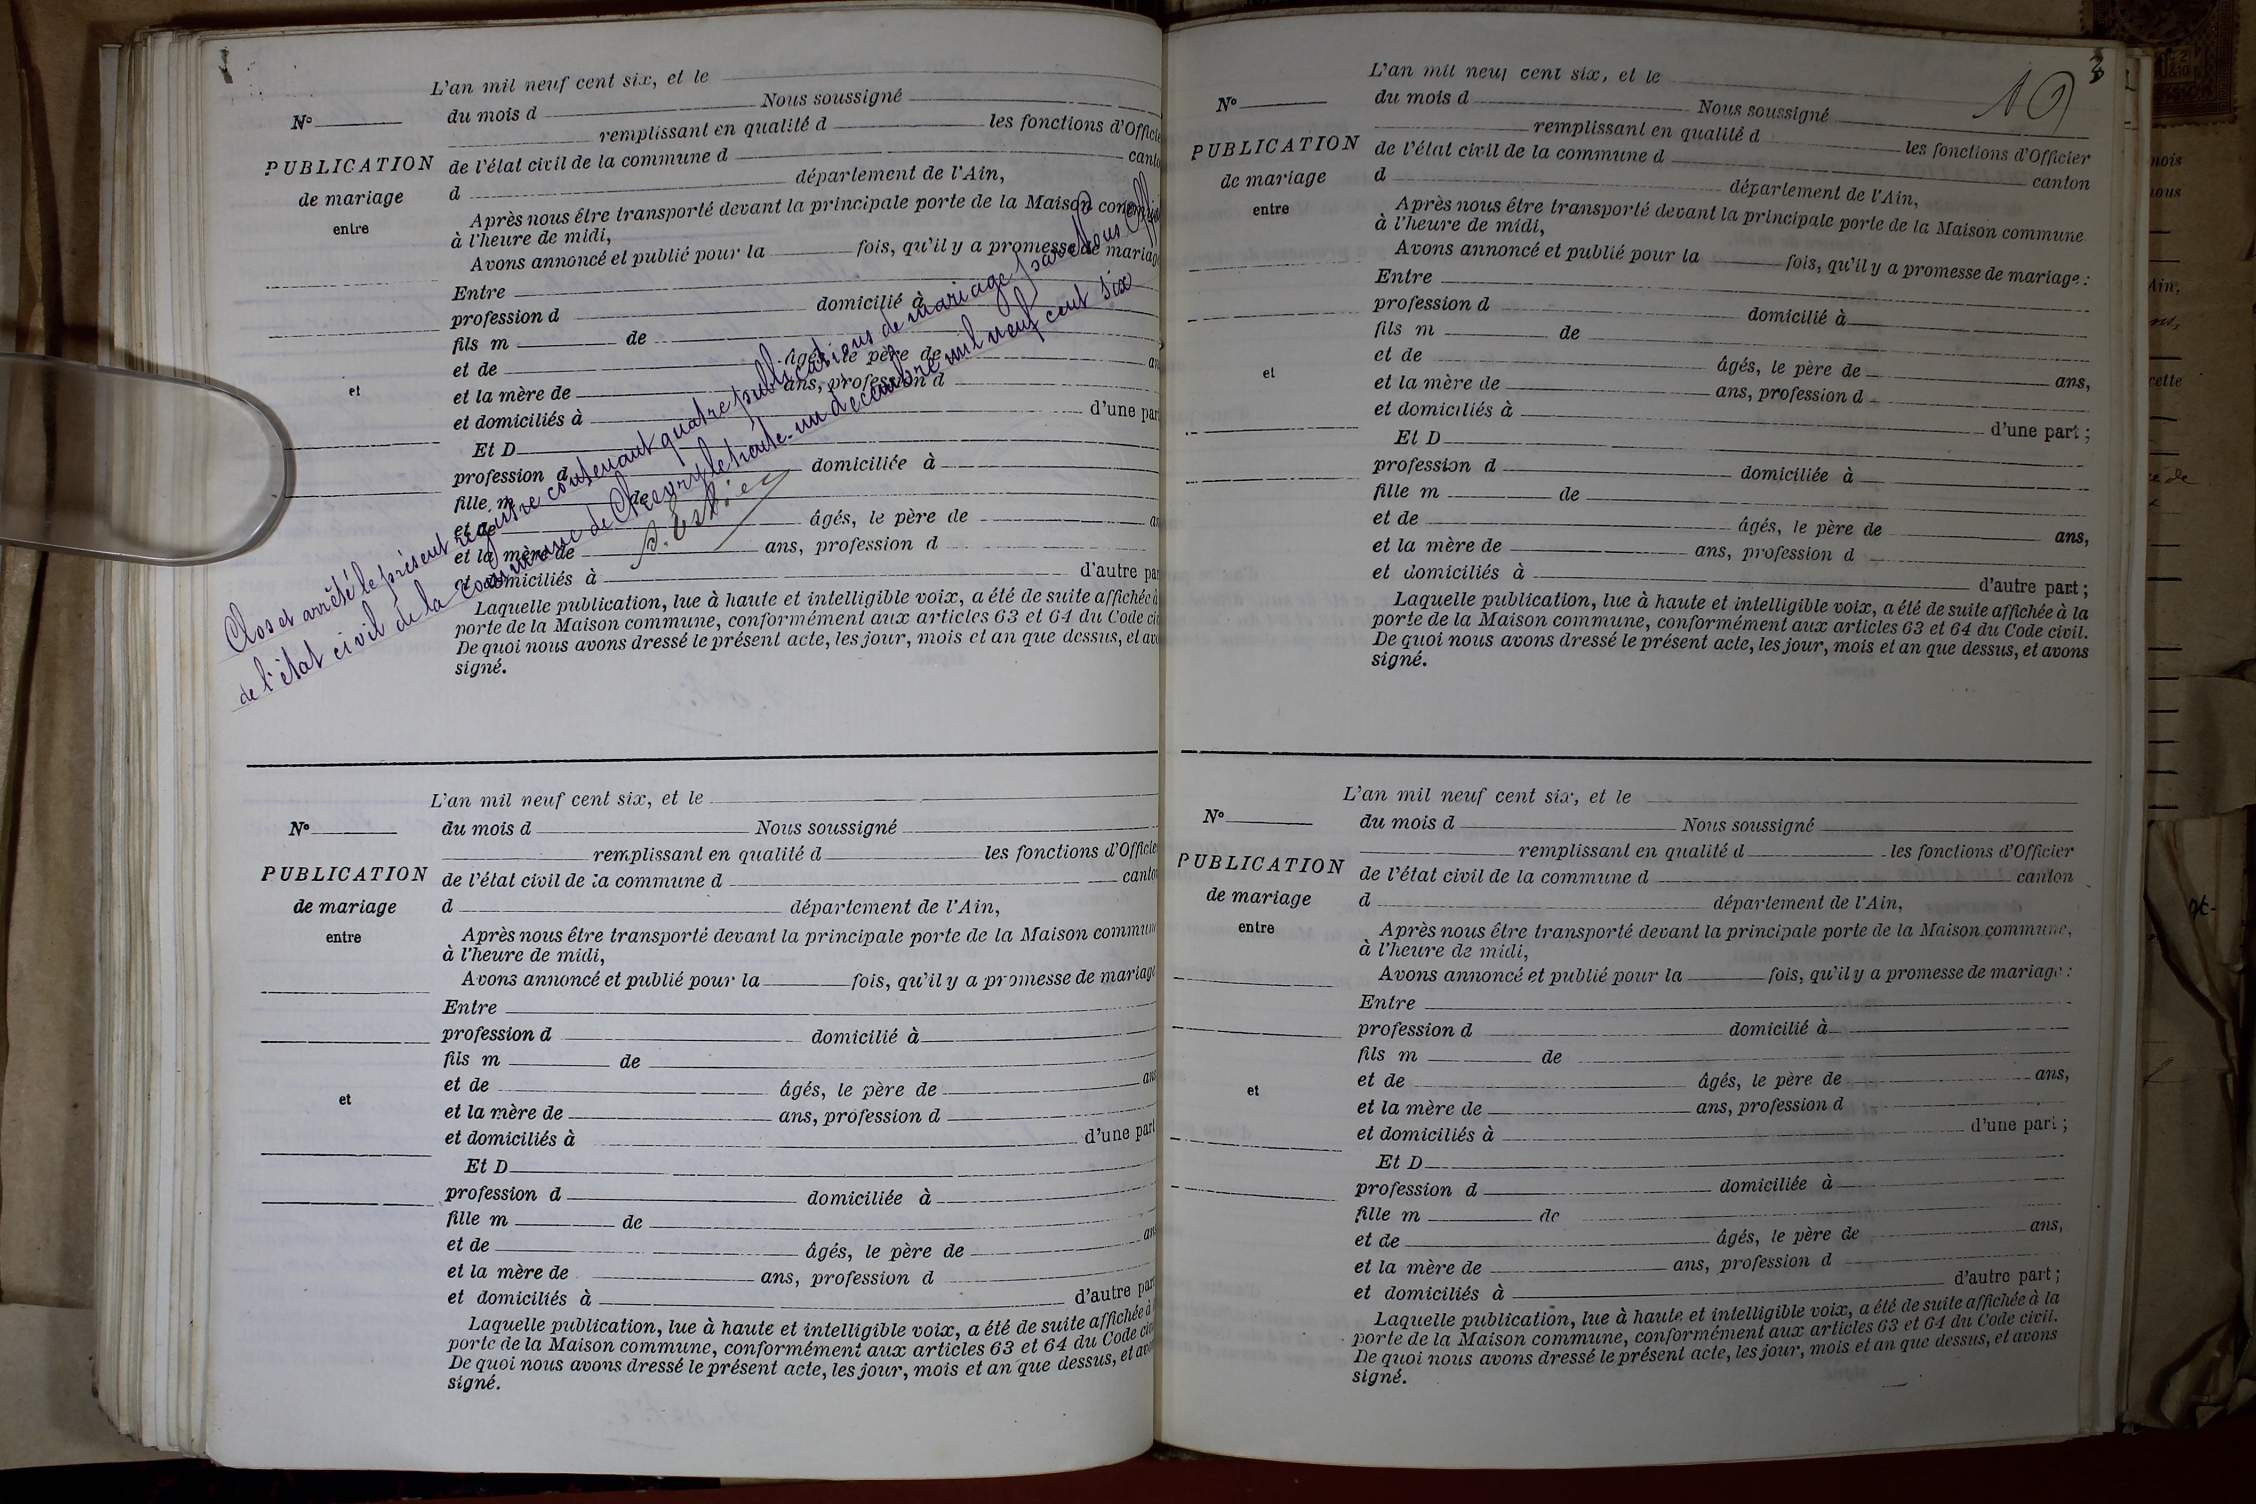 L'an mil neuf cent six, et le
Nº
du mois d Nous soussigné
remplissant en qualité d les fonctions d'Officie
PUBLICATION
de l'état civil de la commune d canto
de mariage
d département de l'Ain,
entre
Après nous être transporté devant la principale porte de la Maison commune
à l'heure de midi,
Avons annoncé et publié pour la fois, qu'il y a promesse de mariage
Entre
profession d domicilié à
fils m de
et de âgés, le père de an
et
et la mère de ans, profession d
et domiciliés à d'une par
Et D
profession d domiciliée à
fille m de
et de âgés, le père de an
et la mère de ans, profession d
et domiciliés à d'autre par
Laquelle publication, lue à haute et intelligible voix, a été de suite affichée à
porte de la Maison commune, conformément aux articles 63 et 64 du Code ci
De quoi nous avons dressé le présent acte, les jour, mois et an que dessus, et avo
signé.
Clos et arrêté le présent registre contenant quatre publications de mariage par Nous Offi
de l'état civil de la commune de Chevry le trente-un décembre mil neuf cent six
L'an mil neuf cent six, et le
Nº
du mois d Nous soussigné
remplissant en qualité d les fonctions d'Officie
PUBLICATION
de l'état civil de la commune d canto
de mariage
d département de l'Ain,
entre
Après nous être transporté devant la principale porte de la Maison commun
à l'heure de midi,
Avons annoncé et publié pour la fois, qu'il y a promesse de mariage
Entre
profession d domicilié à
fils m de
et de âgés, le père de ans
et
et la mère de ans, profession d
et domiciliés à d'une part
Et D
profession d domiciliée à
fille m de
et de âgés, le père de an
et la mère de ans, profession d
et domiciliés à d'autre par
Laquelle publication, lue à haute et intelligible voix, a été de suite affichée à
porte de la Maison commune, conformément aux articles 63 et 64 du Code civ
De quoi nous avons dressé le présent acte, les jour, mois et an que dessus, et avo
signé.
10
L'an mil neuf cent six, et le
Nº
du mois d Nous soussigné
remplissant en qualité d les fonctions d'Officier
PUBLICATION
de l'état civil de la commune d canton
de mariage
d département de l'Ain,
entre
Après nous être transporté devant la principale porte de la Maison commune
à l'heure de midi,
Avons annoncé et publié pour la fois, qu'il y a promesse de mariage :
Entre
profession d domicilié à
fils m de
et de âgés, le père de ans,
et
et la mère de ans, profession d
et domiciliés à d'une part ;
Et D
profession d domiciliée à
fille m de
et de âgés, le père de ans,
et la mère de ans, profession d
et domiciliés à d'autre part ;
Laquelle publication, lue à haute et intelligible voix, a été de suite affichée à la
porte de la Maison commune, conformément aux articles 63 et 64 du Code civil.
De quoi nous avons dressé le présent acte, les jour, mois et an que dessus, et avons
signé.
L'an mil neuf cent six, et le
Nº
du mois d Nous soussigné
remplissant en qualité d les fonctions d'Officier
PUBLICATION
de l'état civil de la commune d canton
de mariage
d département de l'Ain,
entre
Après nous être transporté devant la principale porte de la Maison commune,
à l'heure de midi,
Avons annoncé et publié pour la fois, qu'il y a promesse de mariage :
Entre
profession d domicilié à
fils m de
et de âgés, le père de ans,
et
et la mère de ans, profession d
et domiciliés à d'une part ;
Et D
profession d domiciliée à
fille m de
et de âgés, le père de ans,
et la mère de ans, profession d
et domiciliés à d'autre part ;
Laquelle publication, lue à haute et intelligible voix, a été de suite affichée à la
porte de la Maison commune, conformément aux articles 63 et 64 du Code civil.
De quoi nous avons dressé le présent acte, les jour, mois et an que dessus, et avons
signé.